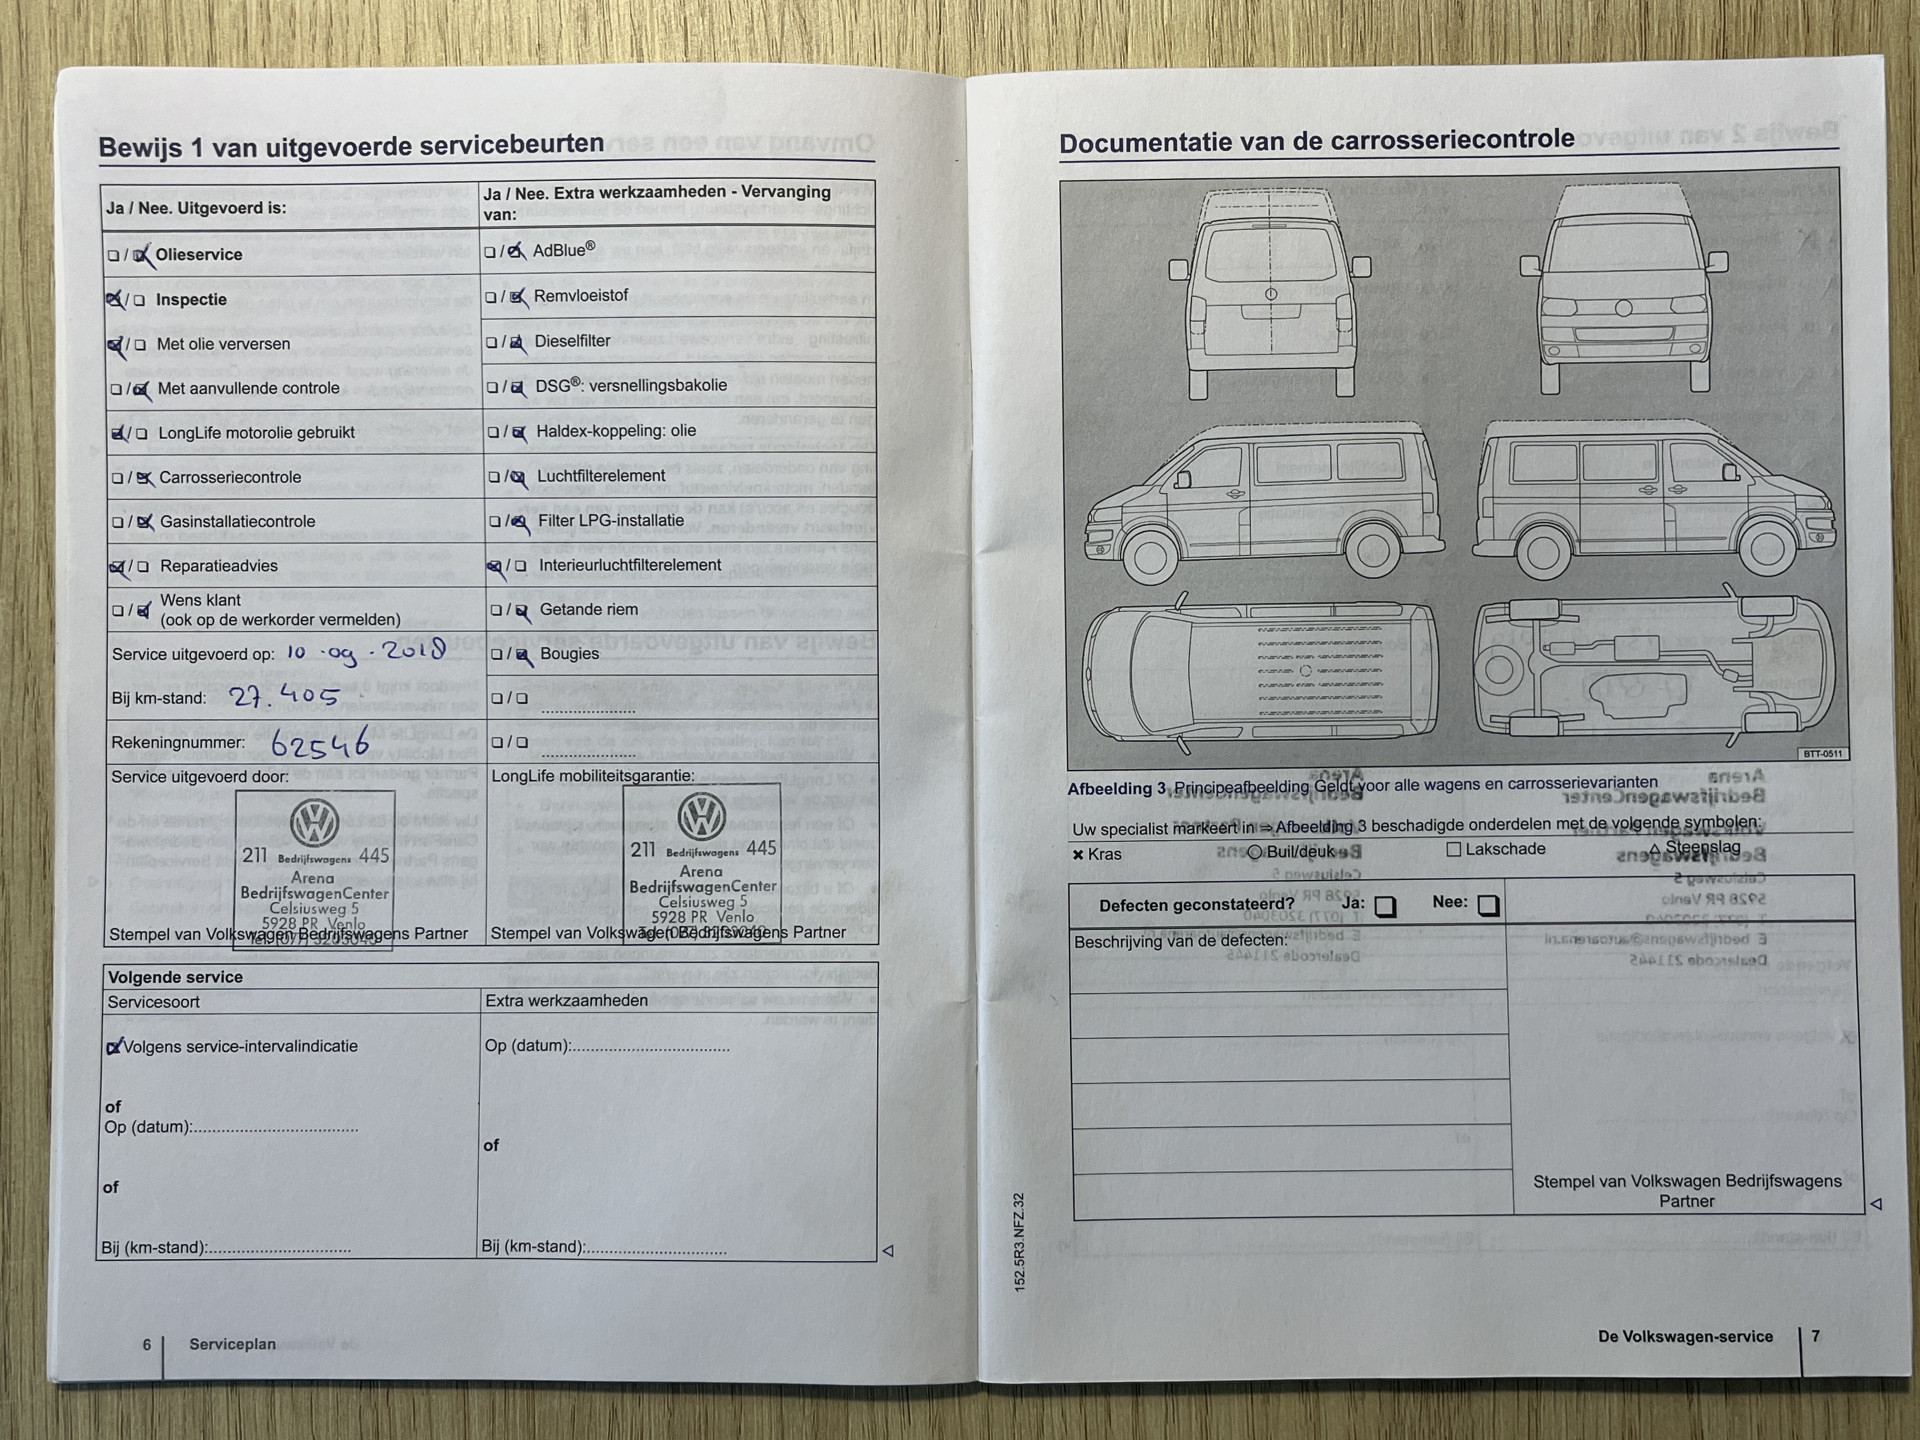 Bewijs 1 van uitgevoerde servicebeurten
Ja / Nee. Uitgevoerd is:
Olieservice
Inspectie
Met olie verversen
Met aanvullende controle
LongLife motorolie gebruikt
Carrosseriecontrole
Gasinstallatiecontrole
Reparatieadvies
Wens klant
(ook op de werkorder vermelden)
Service uitgevoerd op: 10-09-2018
Bij km-stand: 27.405
Rekeningnummer: 62546
Service uitgevoerd door:
211 Bedrijfswagens 445
Arena
BedrijfswagenCenter
Celsiusweg 5
5928 PR Venlo
Tel. (077) 3203040
Stempel van Volkswagen Bedrijfswagens Partner
Ja / Nee. Extra werkzaamheden - Vervanging
van:
AdBlue®
Remvloeistof
Dieselfilter
DSG®: versnellingsbakolie
Haldex-koppeling: olie
Luchtfilterelement
Filter LPG-installatie
Interieurluchtfilterelement
Getande riem
Bougies
LongLife mobiliteitsgarantie:
211 Bedrijfswagens 445
Arena
BedrijfswagenCenter
Celsiusweg 5
5928 PR Venlo
Tel. (077) 3203040
Stempel van Volkswagen Bedrijfswagens Partner
Volgende service
Servicesoort
Volgens service-intervalindicatie
of
Op (datum):
of
Bij (km-stand):
Extra werkzaamheden
Op (datum):
of
Bij (km-stand):
6 Serviceplan
Documentatie van de carrosseriecontrole
BTT-0511
Afbeelding 3 Principeafbeelding Geldt voor alle wagens en carrosserievarianten
Uw specialist markeert in ⇒ Afbeelding 3 beschadigde onderdelen met de volgende symbolen:
× Kras ○ Buil/deuk □ Lakschade △ Steenslag
Defecten geconstateerd? Ja: Nee:
Beschrijving van de defecten:
Stempel van Volkswagen Bedrijfswagens
Partner
152.5R3.NFZ.32
De Volkswagen-service 7